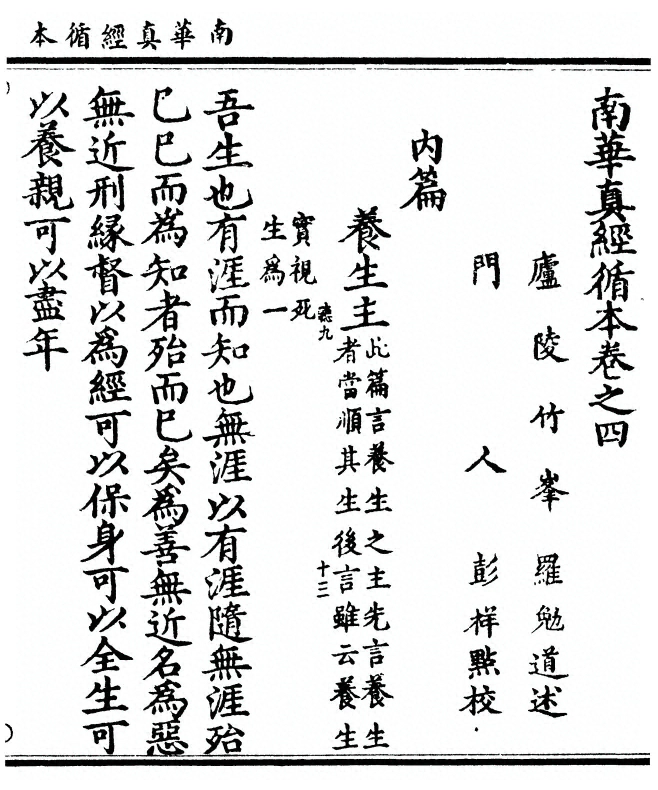 南華真經循本
南華真經循本卷之四
廬陵竹峯羅勉道述
門人彭祥點校
内篇
養生主此篇言養生之主先言養生
者當順其生後言雖云養生
實視死
生爲一
聽九
十三
吾生也有涯而知也無涯以有涯隨無涯殆
已已而為知者殆而已矣為善無近名為惡
無近刑緣督以為經可以保身可以全生可
以養親可以盡年